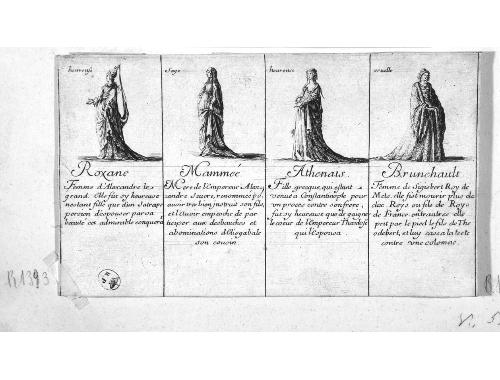 heureuse
Roxane
Femme d'Alexandre le
grand. Elle fut sy heureuse
nestant fille que d'un Satrape
persien d'espouser par sa
beauté cet admirable conquerant
sage
Mammée
Mere de l'Empereur Alex
andre Severe, renommée pr
avoir tres bien instruit son fils,
et l'avoir empesché de par
ticiper aux desbauches et
abominations d'Eliogabale
son cousin
heureuse
Athenais
Fille grecque, qui estant
venue a Constantinople pour
un proces contre son frere,
fut sy heureuse que de gaigner
le coeur de l'Empereur Theodose
qui l'espousa
cruelle
Brunehault
Femme de Sigisbert Roy de
Mets. elle fist mourir plus de
dix Roys ou fils de Roys
de France. entre autres elle
prit par le pied le fils de The
odebert, et luy cassa la teste
contre une colomne.
R1393